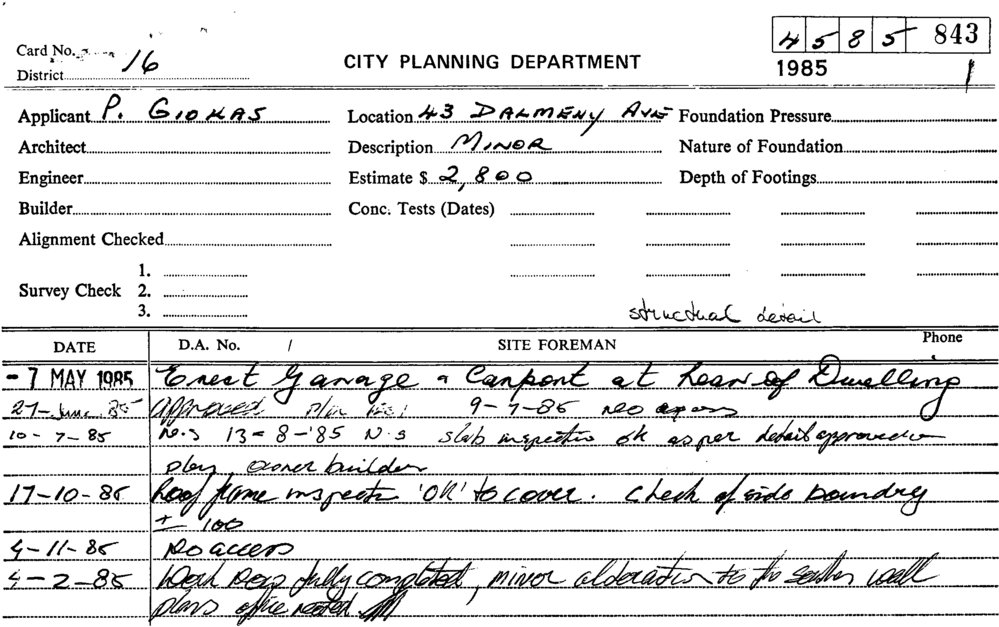 4585 843
Card No. 16
CITY PLANNING DEPARTMENT
1985
District
Applicant P. GIOKAS Location 43 DALMENY AVE Foundation Pressure
Architect Description MINOR Nature of Foundation
Engineer Estimate $ 2,800 Depth of Footings
Builder Conc. Tests (Dates)
Alignment Checked
1.
Survey Check 2.
3.
structural detail
DATE D.A. No. / SITE FOREMAN Phone
- 7 MAY 1985 Erect Garage & Carport at rear of Dwelling
27-June 85 approved plan 9-7-85 no access
10-7-85 N.S 13-8-'85 N.S slab inspection ok as per detail approved on
plan, owner builder
17-10-85 Roof frame inspection 'OK' to cover. Check of side boundry
± 100
4-11-85 No access
4-2-85 Work fully completed, minor alteration to the southern wall
plans office noted